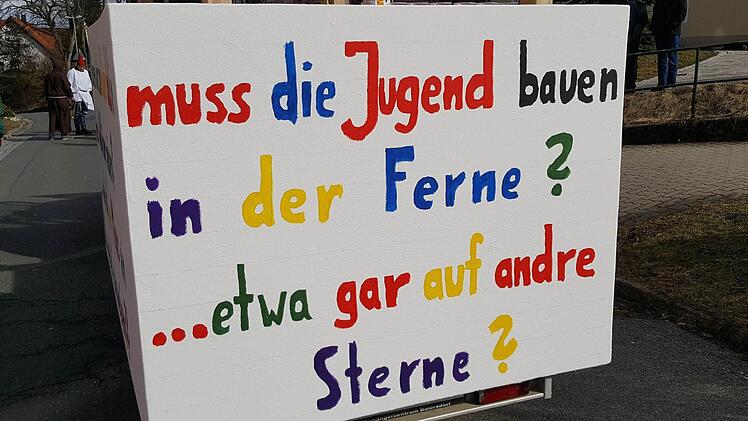 muss die Jugend bauen
in der Ferne ?
...etwa gar auf andre
Sterne ?